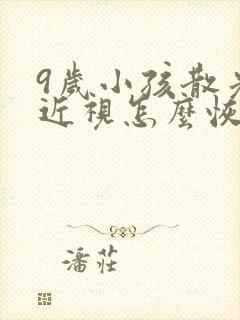 9歲小孩散
近視怎麼恢
潘莊